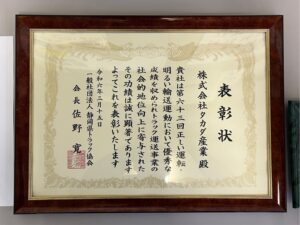 表彰状
株式会社タカダ産業 殿
貴社は第六十三回正しい運転
明るい輸送運動において優秀な
成績を収められトラック運送事業の
社会的地位向上に寄与された
その功績は誠に顕著であります
よってこれを表彰いたします
令和六年三月十五日
一般社団法人 静岡県トラック協会
会長 佐野 寛